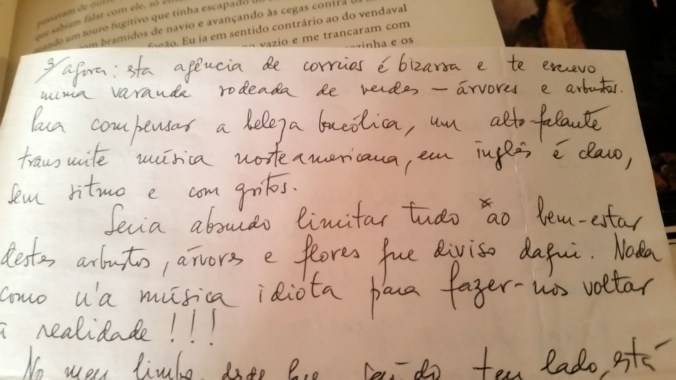 passavam de outro
que sabiam falar com ele, só en
um touro fugitivo que tinha escapado do
com bramidos de navio e avançando às cegas contra os
Eu ia em sentido contrário ao do vendaval
vazio e me trancaram com
zinha e os
3/ agora: esta agência de correios é bizarra e te escrevo
numa varanda rodeada de verdes — árvores e arbustos.
Para compensar a beleza bucólica, um alto-falante
transmite música norteamericana, em inglês é claro,
sem ritmo e com gritos.
Seria absurdo limitar tudo *ao bem-estar
destes arbustos, árvores e flores que diviso daqui. Nada
como u'a música idiota para fazer-nos voltar
à realidade!!!
No meu limbo, do teu lado, está